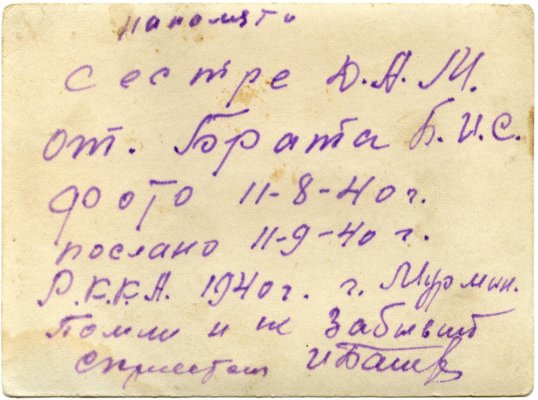 на помять
сестре Д.А.М.
от. Брата Б.И.С.
фото 11-8-40 г.
послано 11-9-40 г.
Р.К.К.А. 1940 г. г. Мурман.
Помни и не Забывай
с приветом